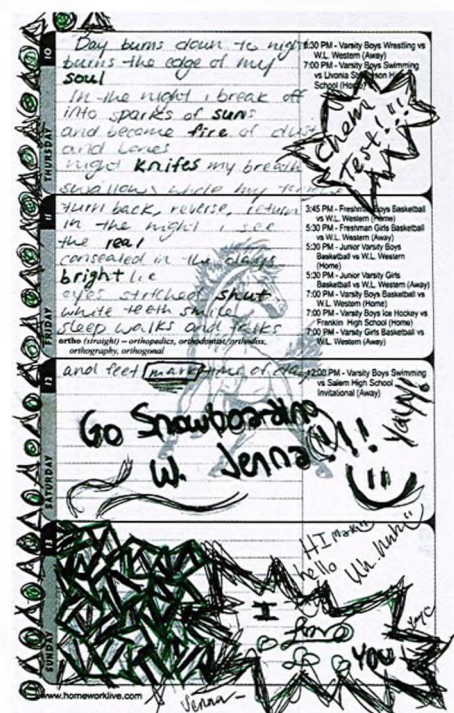 10
THURSDAY
Day burns down to night
burns the edge of my
soul
In the night i break off
into sparks of suns
and become fire of dust
and bones
night knifes my breath
swallows whole my
6:30 PM - Varsity Boys Wrestling vs
W.L. Western (Away)
7:00 PM - Varsity Boys Swimming
vs Livonia Stevenson High
School (Home)
Chem
Test!!!
11
FRIDAY
turn back, reverse, return
in the night i see
the real
consealed in the days
bright lie
eyes stitched shut
white teeth smile
sleep walks and talks
ortho (straight) – orthopedics, orthodontist/orthodox,
orthography, orthogonal
3:45 PM - Freshman Boys Basketball
vs W.L. Western (Home)
5:30 PM - Freshman Girls Basketball
vs W.L. Western (Away)
5:30 PM - Junior Varsity Boys
Basketball vs W.L. Western
(Home)
5:30 PM - Junior Varsity Girls
Basketball vs W.L. Western (Away)
7:00 PM - Varsity Boys Basketball vs
W.L. Western (Home)
7:00 PM - Varsity Boys Ice Hockey vs
Franklin High School (Home)
7:00 PM - Varsity Girls Basketball vs
W.L. Western (Away)
12
SATURDAY
and feet mark time of day
12:00 PM - Varsity Boys Swimming
vs Salem High School
Invitational (Away)
Go Snowboarding
W. Jenna!!!
Yayy!
13
SUNDAY
HI
hello
Uh huh
I
Love
YOU!
Jenna
www.homeworklive.com